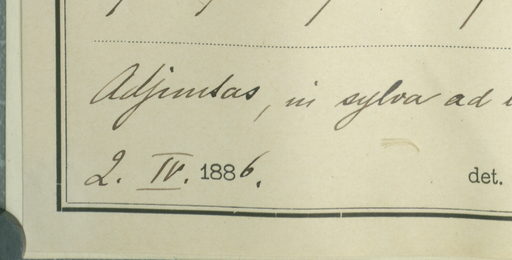 Adjuntas, in sylva ad
2. IV. 1886.
det.